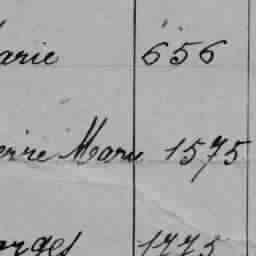 arie 656
erre Marie 1575
orges 1775